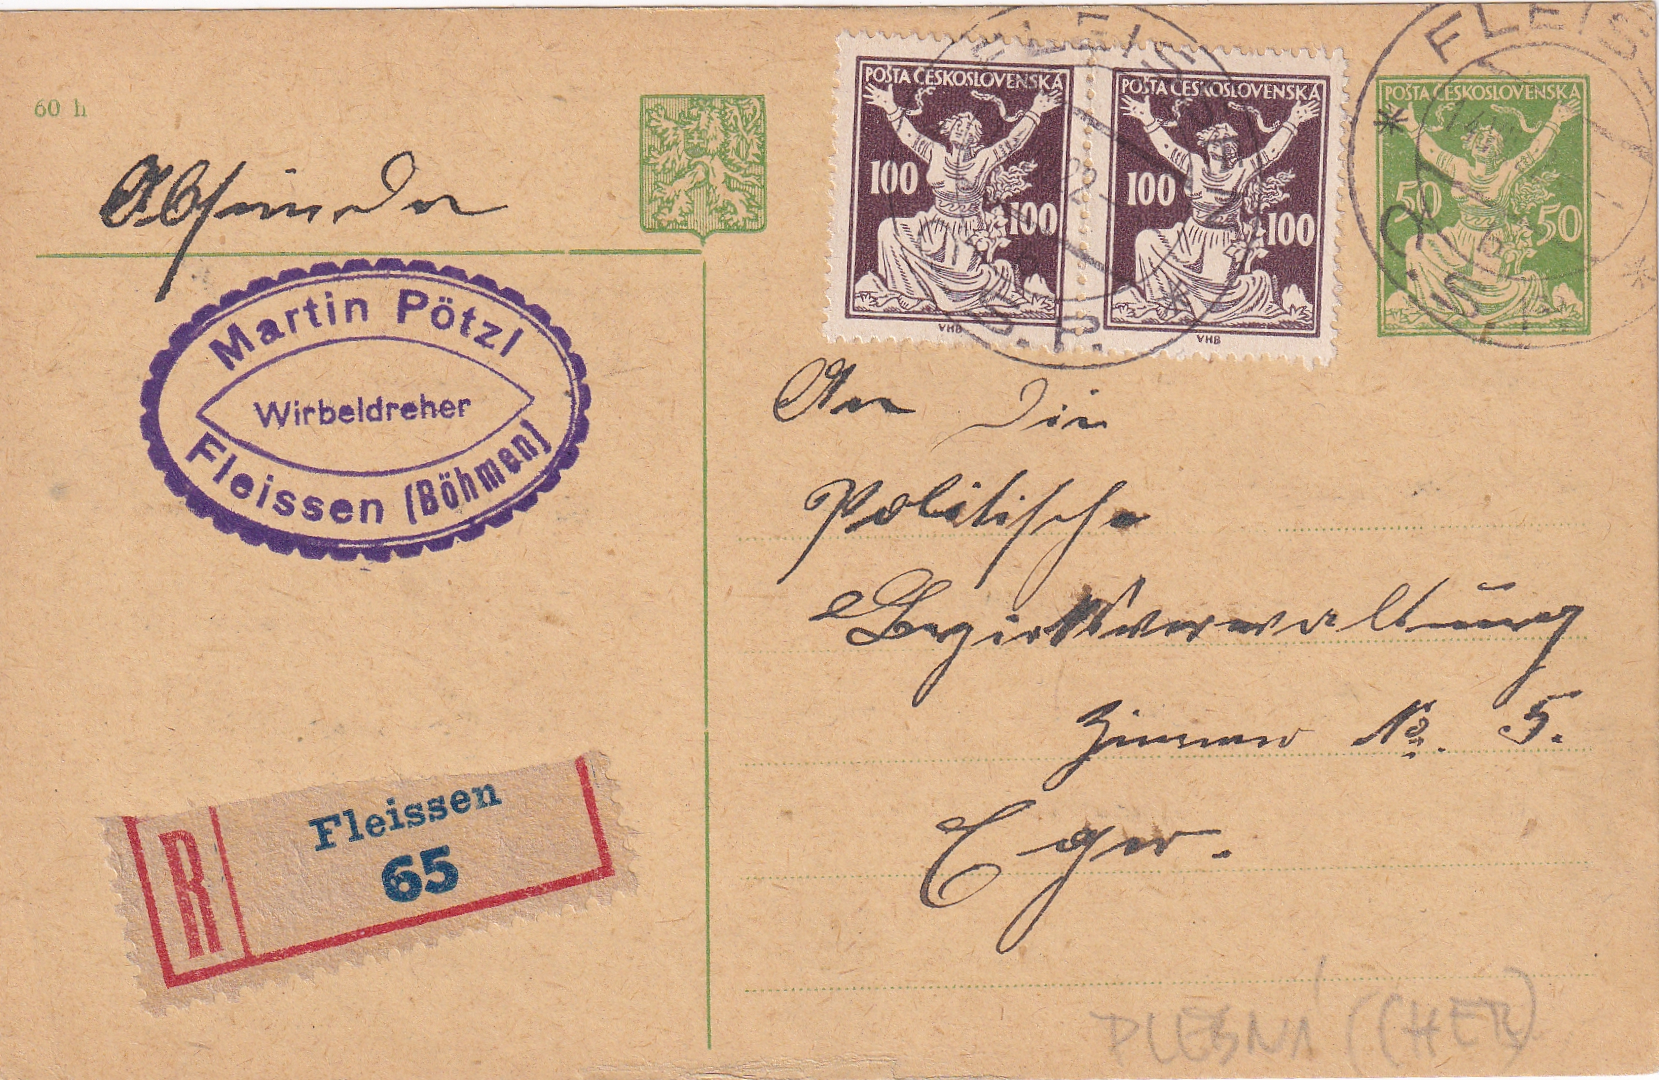 60 h
POŠTA ČESKOSLOVENSKÁ
100
100
VHB
POŠTA ČESKOSLOVENSKÁ
100
100
VHB
POŠTA ČESKOSLOVENSKÁ
50
50
FLEIS
Absender
Martin Pötzl
Wirbeldreher
Fleissen (Böhmen)
An die
Politische
Bezirksverwaltung
Zimmer No. 5.
Eger.
R
Fleissen
65
PLESNÁ (CHEB)